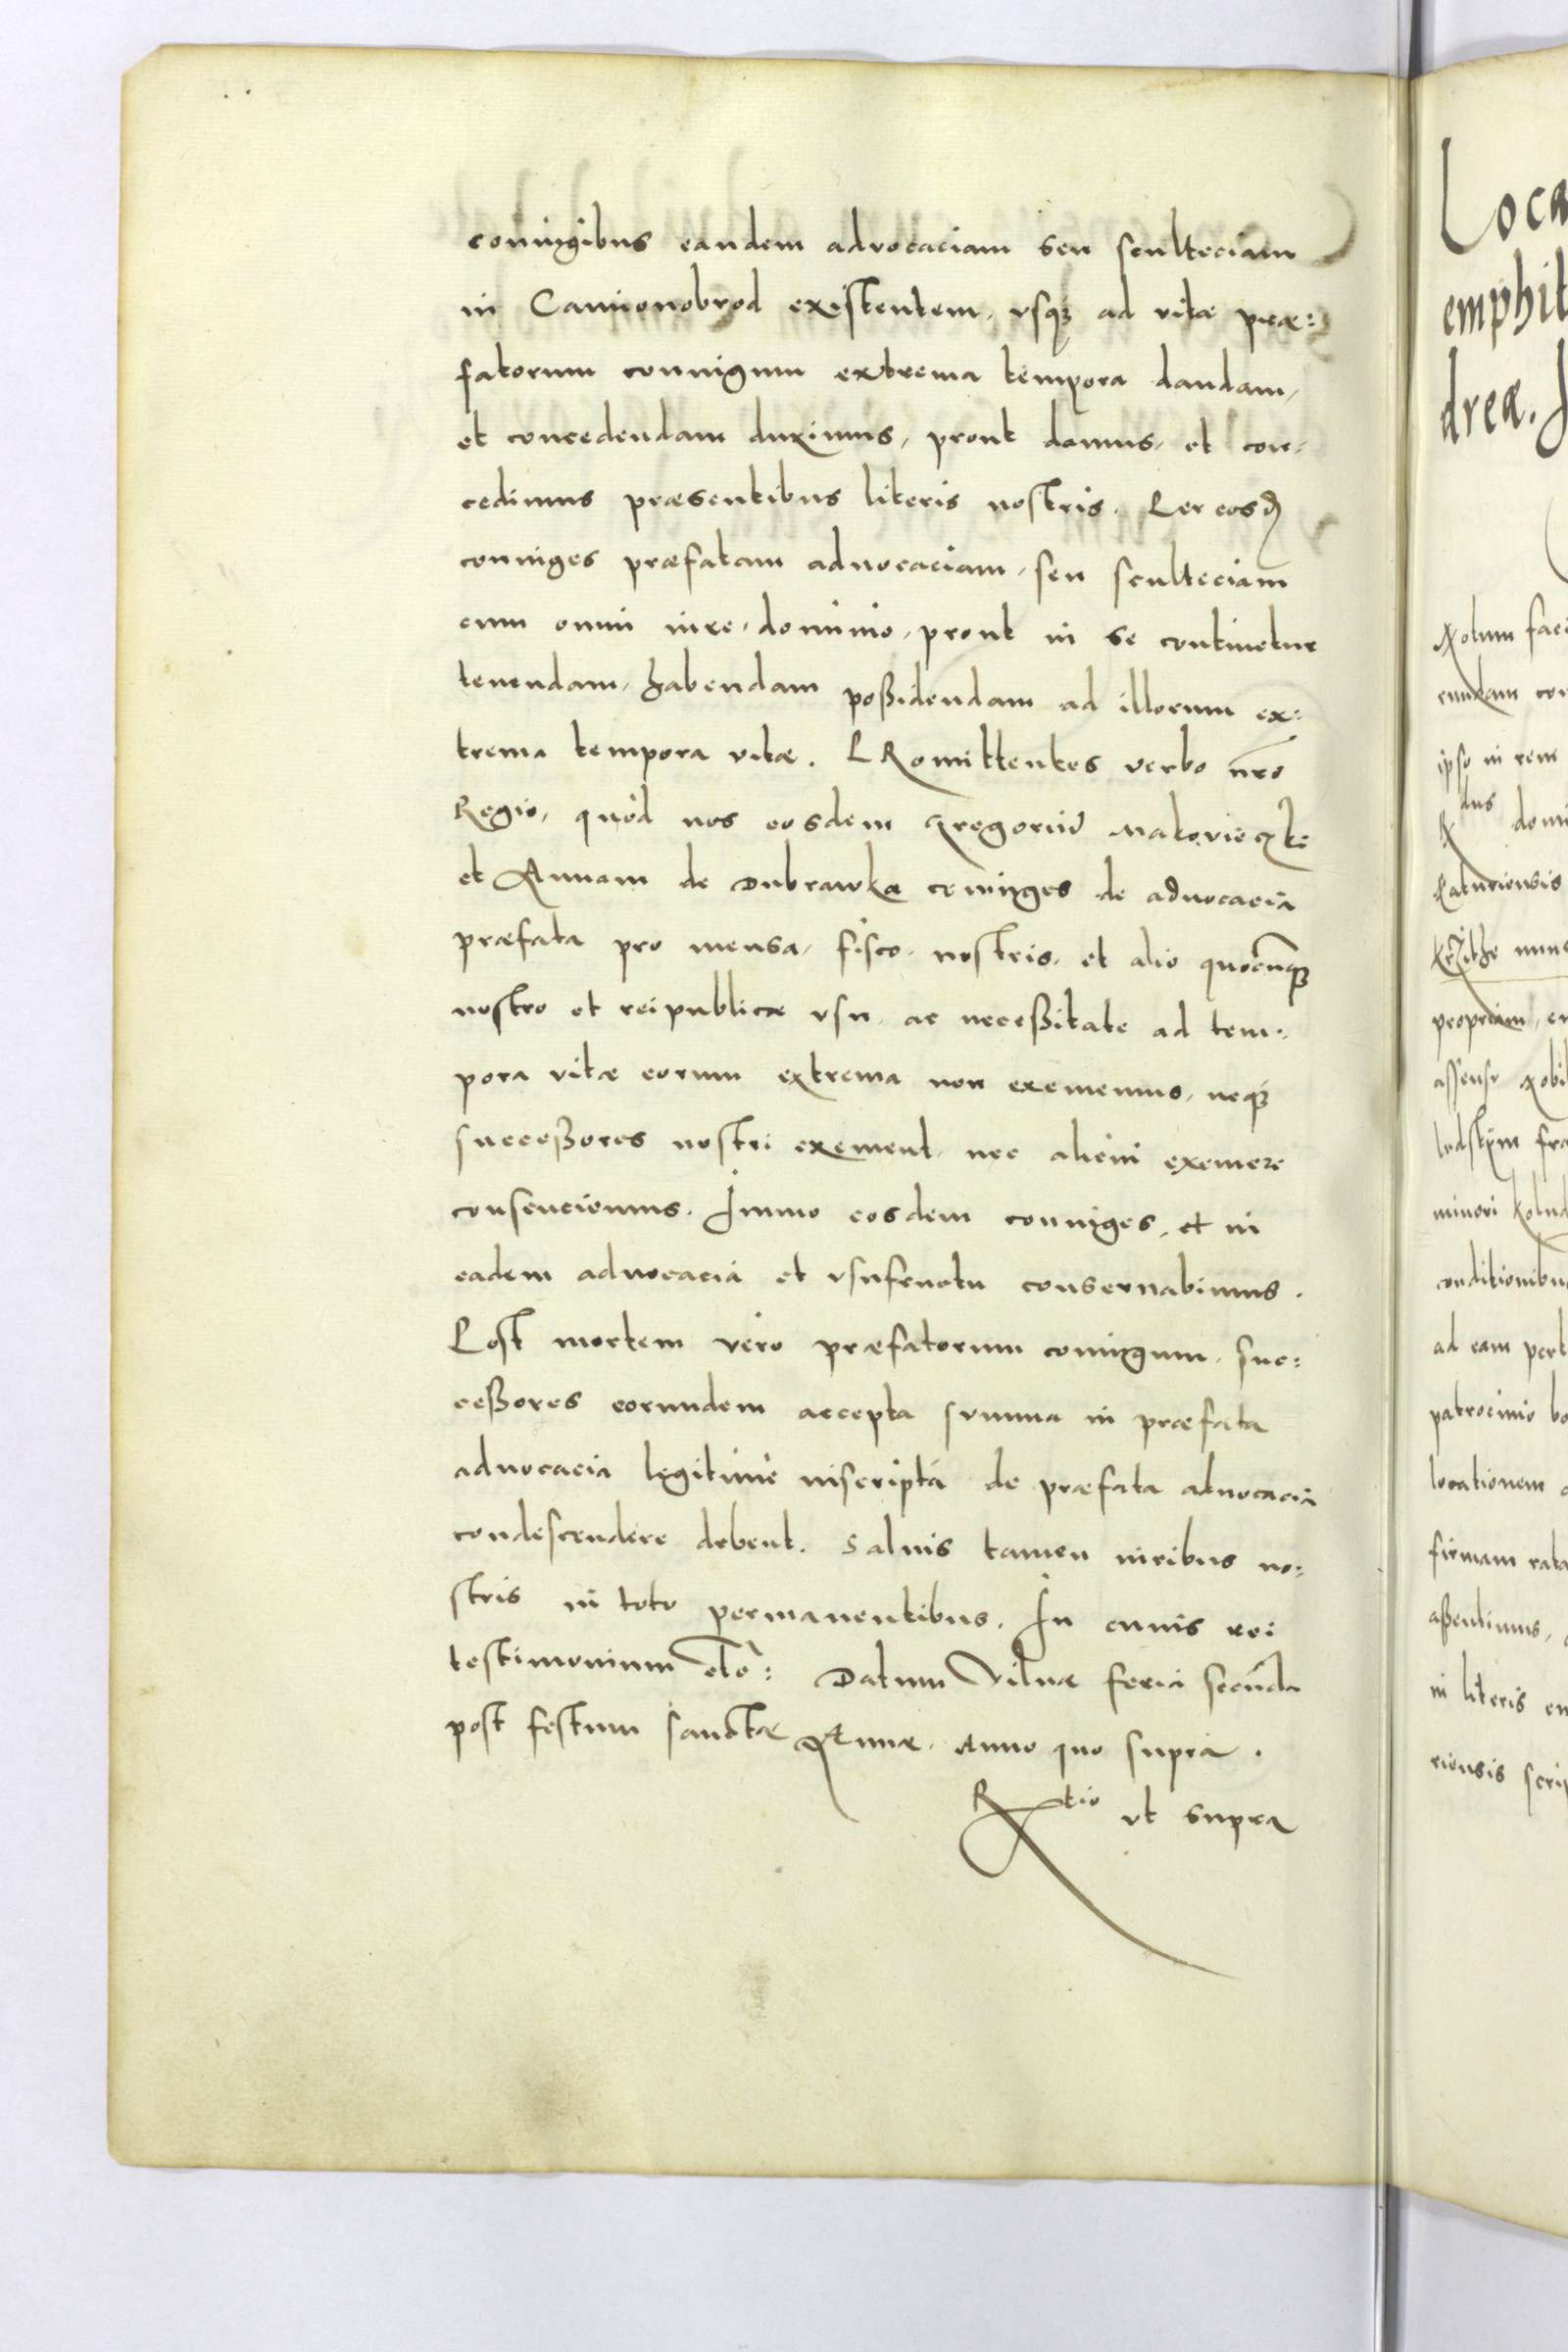 coniugibus eandem advocaciam seu sculteciam
in Camionobrod existentem, usq; ad vitæ præ:
fatorum coniugum extrema tempora dandam,
et concedendam duximus, prout damus, et con-
cedimus præsentibus literis nostris. Per eosd
coniuges præfatam aduocaciam, seu sculteciam
cum omni iure, dominio, prout in se continetur
tenendam, habendam poßidendam ad illorum ex:
trema tempora vitæ. PRomittentes verbo nro
Regio, quòd nos eosdem Gregoriũ Makovieczki
et Annam de Dubrawka coniuges de aduocacia
præfata pro mensa, fisco, nostris, et alio quocunq;
nostro et reipublicæ usu, ac neceßitate ad tem:
pora vitæ eorum extrema non exememus, neq;
succeßores nostri exement, nec alieni exemere
consenciemus. Immo eosdem coniuges, et in
eadem aduocacia et usufructu conseruabimus.
Post mortem vero præfatorum coniugum, suc:
ceßores eorundem accepta summa in præfata
aduocacia legitimè inscripta de præfata aduocacia
condescendere debent. Saluis tamen iuribus no:
stris in toto permanentibus. In cuius rei
testimonium etc: Datum Vilnæ feria secunda
post festum sanctæ Annæ. Anno quo supra.
Rtio ut supra
Loca
emphit
dreæ. J
Notum faci
ipso in rem
dus domi
propriam, en
assensu Nobil
minori
conditionibus
ad eam pert
patrocinio bo
locationem
firmam rata
aßentimus,
in literis en
riensis scrip